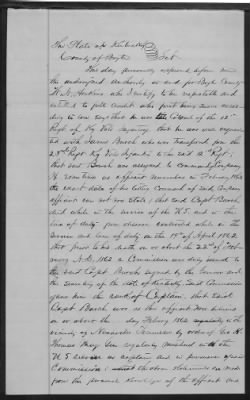 The State of Kentucky
County of Boyle Sct
This day personally appeared before me
the undersigned authority in and for Boyle County
who I certify to be respectable and
entitled to full credit who first being sworn accor-
ding to law says that he was late of the 12th
Regt of Ky Vols Infantry, that he was well acquain-
ted with James Burch who was transfered from the
Regt Ky Vols to the said 12th Regt
that said Burch was assigned to Command Company
H sometime as affiant remembers in February 1862
the exact date of his taking Command of said Company
affiant can not now state, that said Capt Burch
died while in the service of the U.S. and in the
line of duty from disease contracted while in the
service and line of duty on the 19th day April 1862
that prior to his death on or about the 22nd of Feb
ruary A.D. 1862 a Commission was duly issued to
the said Capt Burch signed by the Governor and
the secretary of the state of Kentucky said Commission
gave him the rank of Captain, that said
Capt Burch was as the affiant now believes
on or about the day Feb'ry 1862 in the
vicinity of Nashville Tennessee by order of Geo H.
Thomas Maj Gen regularly mustered in the
U S service as captain and in pursuance of said
Commission that the above statements are made
from the personal knowledge of the affiant and